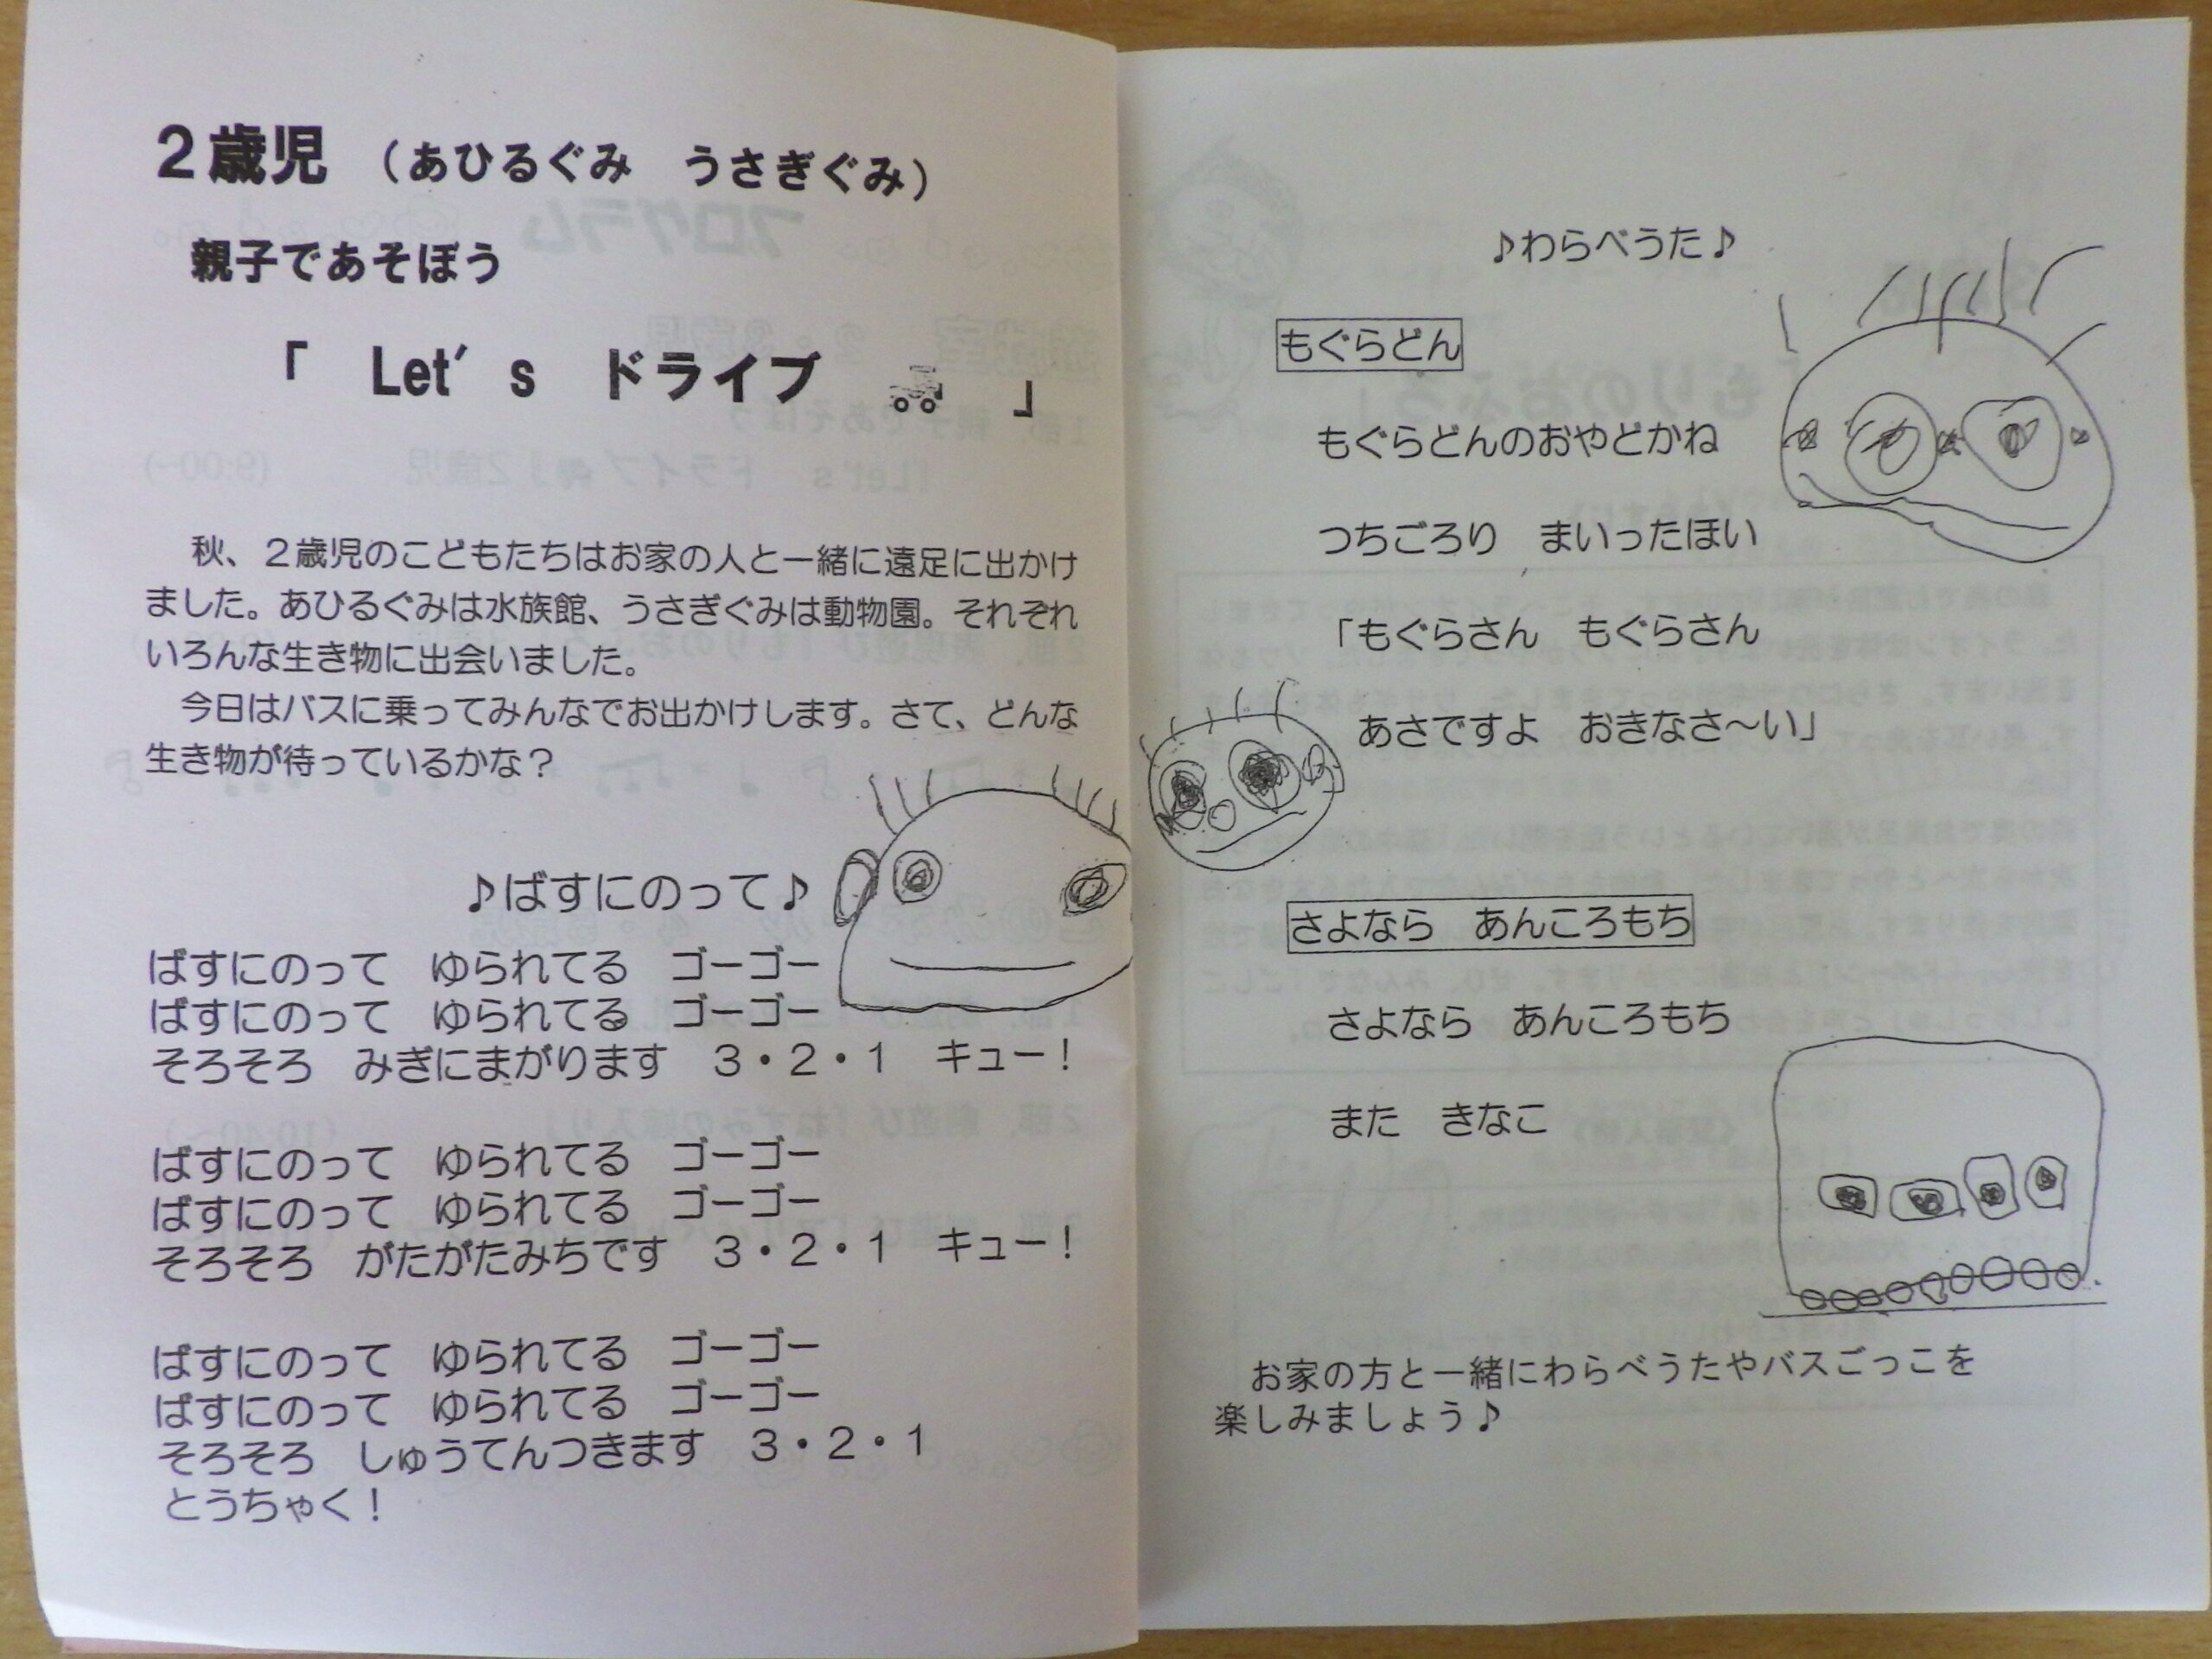 ２歳児　（あひるぐみ　うさぎぐみ）
親子であそぼう
「　Let's　ドライブ　」
秋、２歳児のこどもたちはお家の人と一緒に遠足に出かけ
ました。あひるぐみは水族館、うさぎぐみは動物園。それぞれ
いろんな生き物に出会いました。
今日はバスに乗ってみんなでお出かけします。さて、どんな
生き物が待っているかな？
♪ばすにのって♪
ばすにのって　ゆられてる　ゴーゴー
ばすにのって　ゆられてる　ゴーゴー
そろそろ　みぎにまがります　３・２・１　キュー！
ばすにのって　ゆられてる　ゴーゴー
ばすにのって　ゆられてる　ゴーゴー
そろそろ　がたがたみちです　３・２・１　キュー！
ばすにのって　ゆられてる　ゴーゴー
ばすにのって　ゆられてる　ゴーゴー
そろそろ　しゅうてんつきます　３・２・１
とうちゃく！
♪わらべうた♪
もぐらどん
もぐらどんのおやどかね
つちごろり　まいったほい
「もぐらさん　もぐらさん
あさですよ　おきなさ～い」
さよなら　あんころもち
さよなら　あんころもち
また　きなこ
お家の方と一緒にわらべうたやバスごっこを
楽しみましょう♪